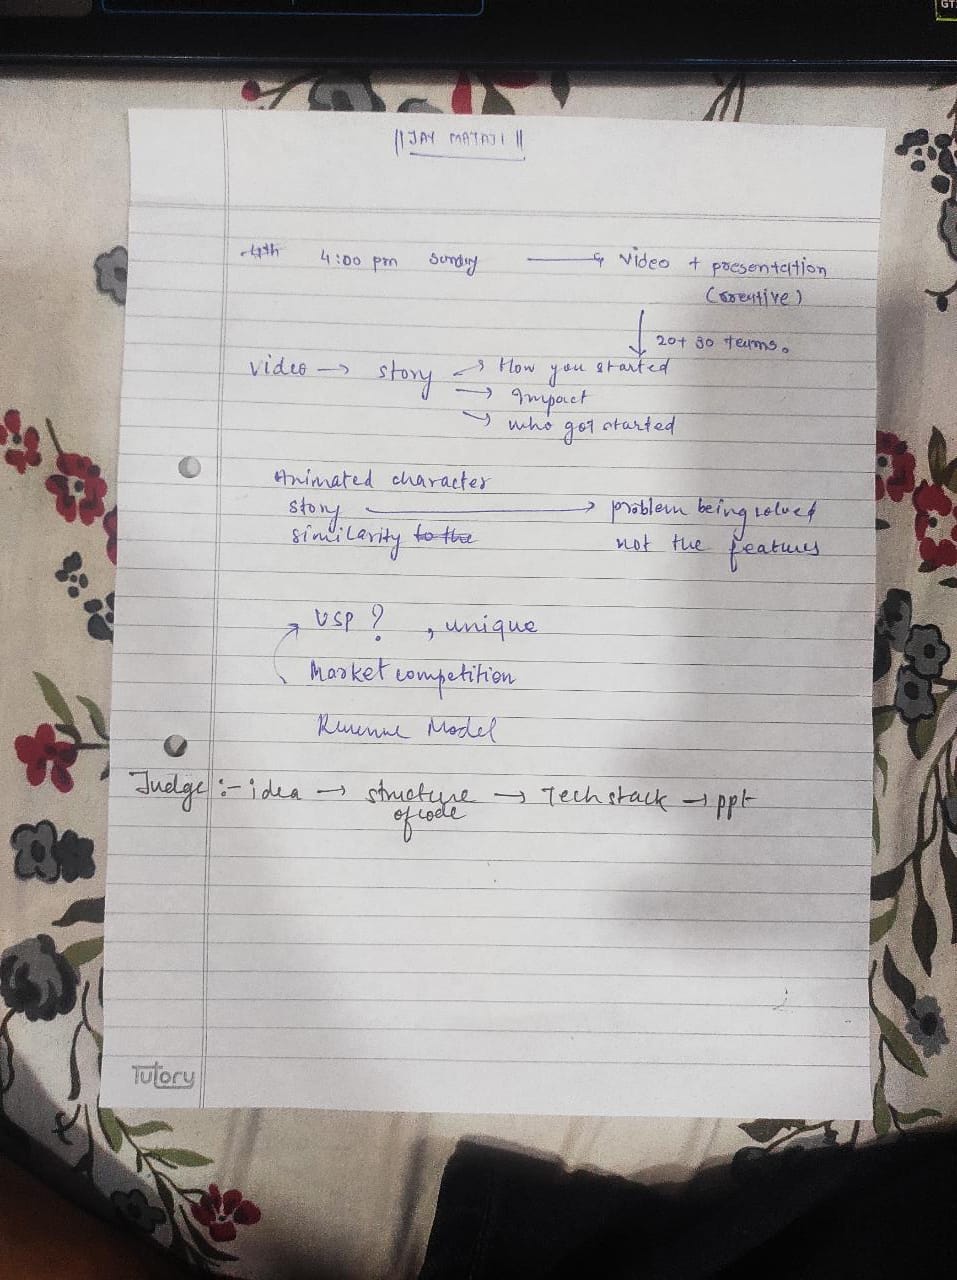 || JAY MATAJI ||
4th 4:00 pm Sunday → Video + presentation
(creative)
↓ 20+ 30 teams.
Video → story → How you started
→ Impact
→ who got started
Animated character
story → problem being solved
similarity to the not the features
USP ? , unique
Market competition
Revenue Model
Judge :- idea → structure → Tech stack → ppt
of code
Tutory